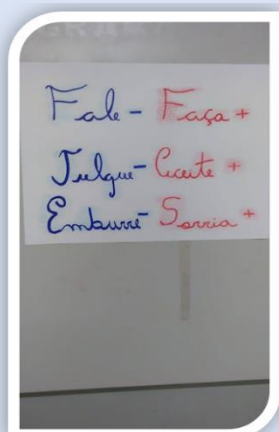 Fale - Faça +
Julgue - Aceite +
Emburre - Sorria +